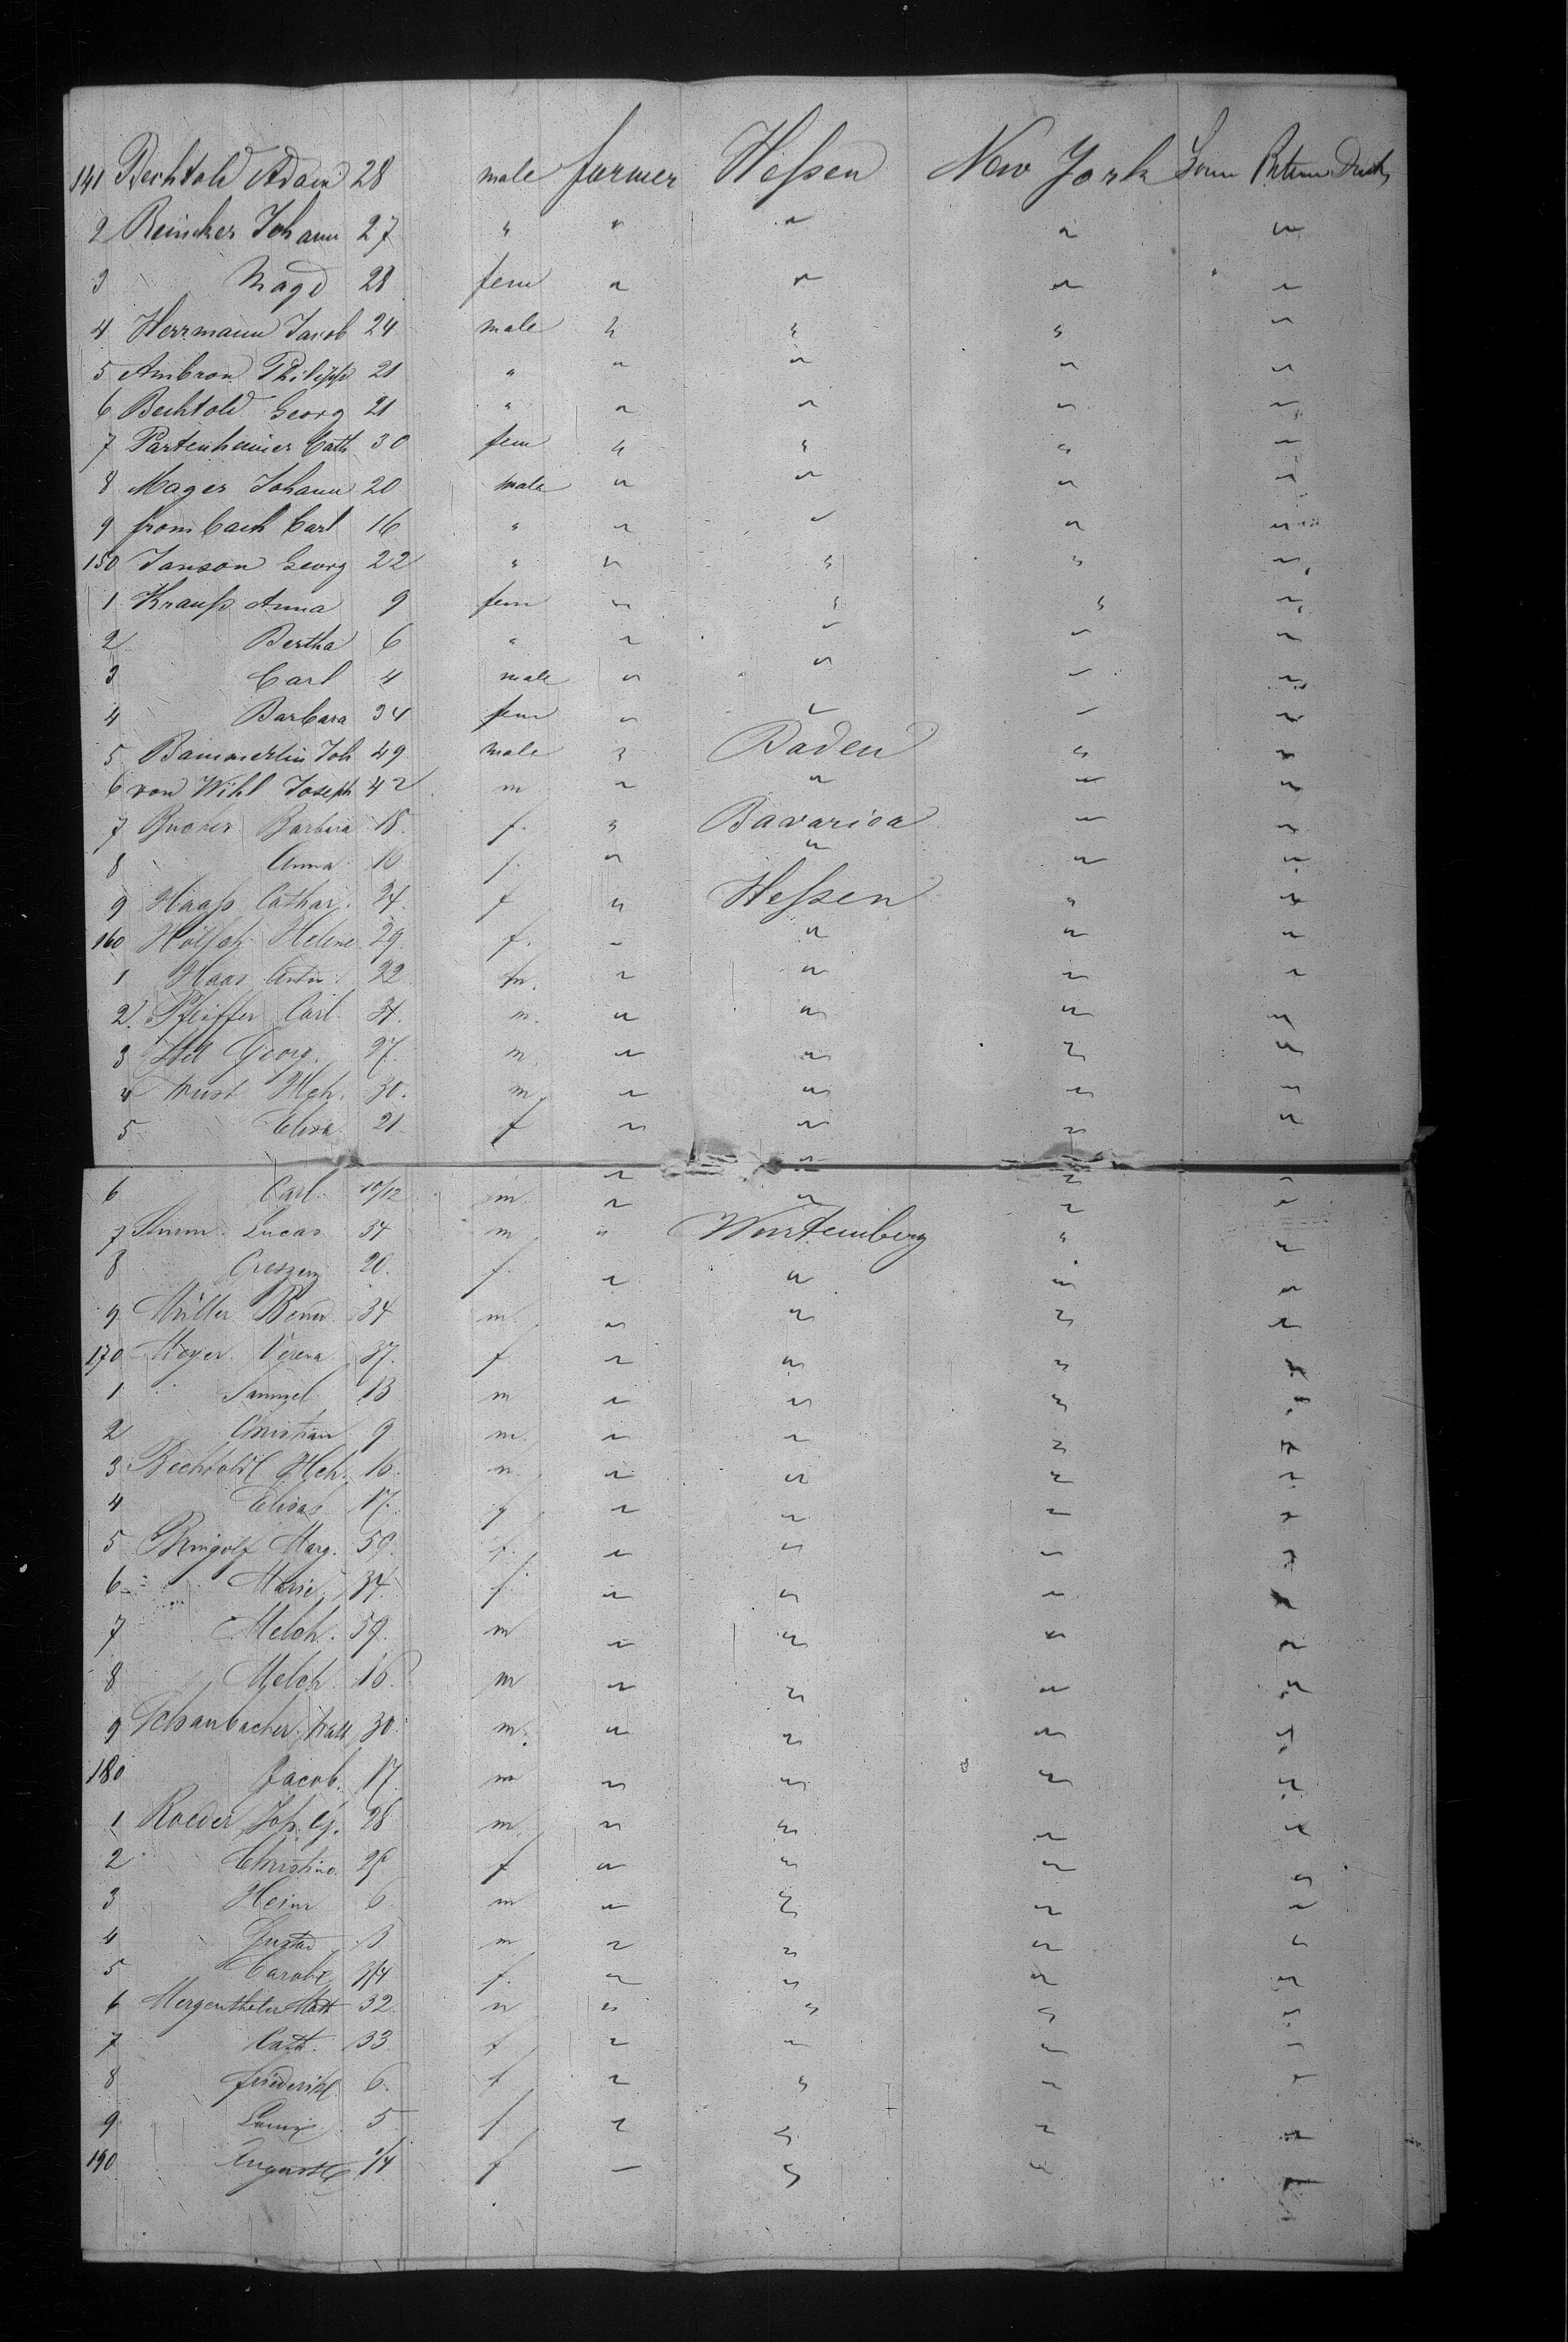 141 Bechtold Adam 28 male farmer Hessen New York Lower Between Deck
2 Reincker Johann 27 " " " " "
3 Magd 28 fem " " " "
4 Herrmann Jacob 24 male " " " "
5 Ambron Philipp 21 " " " " "
6 Bechtold Georg 21 " " " " "
7 Partenheimer Cath 30 fem " " " "
8 Mager Johann 20 male " " " "
9 frombach Carl 16 " " " " "
150 Janson Georg 22 " " " " "
1 Krauss Anna 9 fem " " " "
2 Bertha 6 " " " " "
3 Carl 4 male " " " "
4 Barbara 34 fem " " " "
5 Bammerlin Joh 49 male " Baden " "
6 von Wihl Joseph 42 m " " " "
7 Barbara 18 f. " Bavaria " "
8 Anna 16 f. " " " "
9 Haass Cathar. 24. f " Hessen " "
160 Helene 29. f. " " " "
1 Haas Anton 22 m. " " " "
2 Pfeiffer Carl. 31. m. " " " "
3 Georg. 27. m. " " " "
4 Wust Hch. 30. m. " " " "
5 Elisa 21 f " " " "
6 Carl. 10/12 m. " " " "
7 Lucas 54 m " Wurtemberg " "
8 Creszenz 20. f. " " " "
9 Müller Bened. 34 m. " " " "
170 Meyer Verena 37. f " " " "
1 Samuel 13 m " " " "
2 Christian 9 m. " " " "
3 Bechtold Hch. 16. m. " " " "
4 Elisab 17. f " " " "
5 Bringolf Marg. 59. f. " " " "
6 Marie 34. f. " " " "
7 Melch. 59. m " " " "
8 Melch. 16. m " " " "
9 Schanbacher 30. m. " " " "
180 Jacob. 17. m " " " "
1 Roeder Joh. G. 28 m. " " " "
2 Christine 25 f " " " "
3 Heinr 6. m " " " "
4 Gustav 3 m " " " "
5 Carol. 3/4 f. " " " "
6 Mergenthaler Matt 32. m " " " "
7 Cath. 33 f " " " "
8 friederike 6. f " " " "
9 Louise 5 f " " " "
190 Auguste 1/4 f " " " "